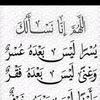 اللهم إنا نسألك
يسرا ليس بعده عسر
وغنى ليس بعده فقر